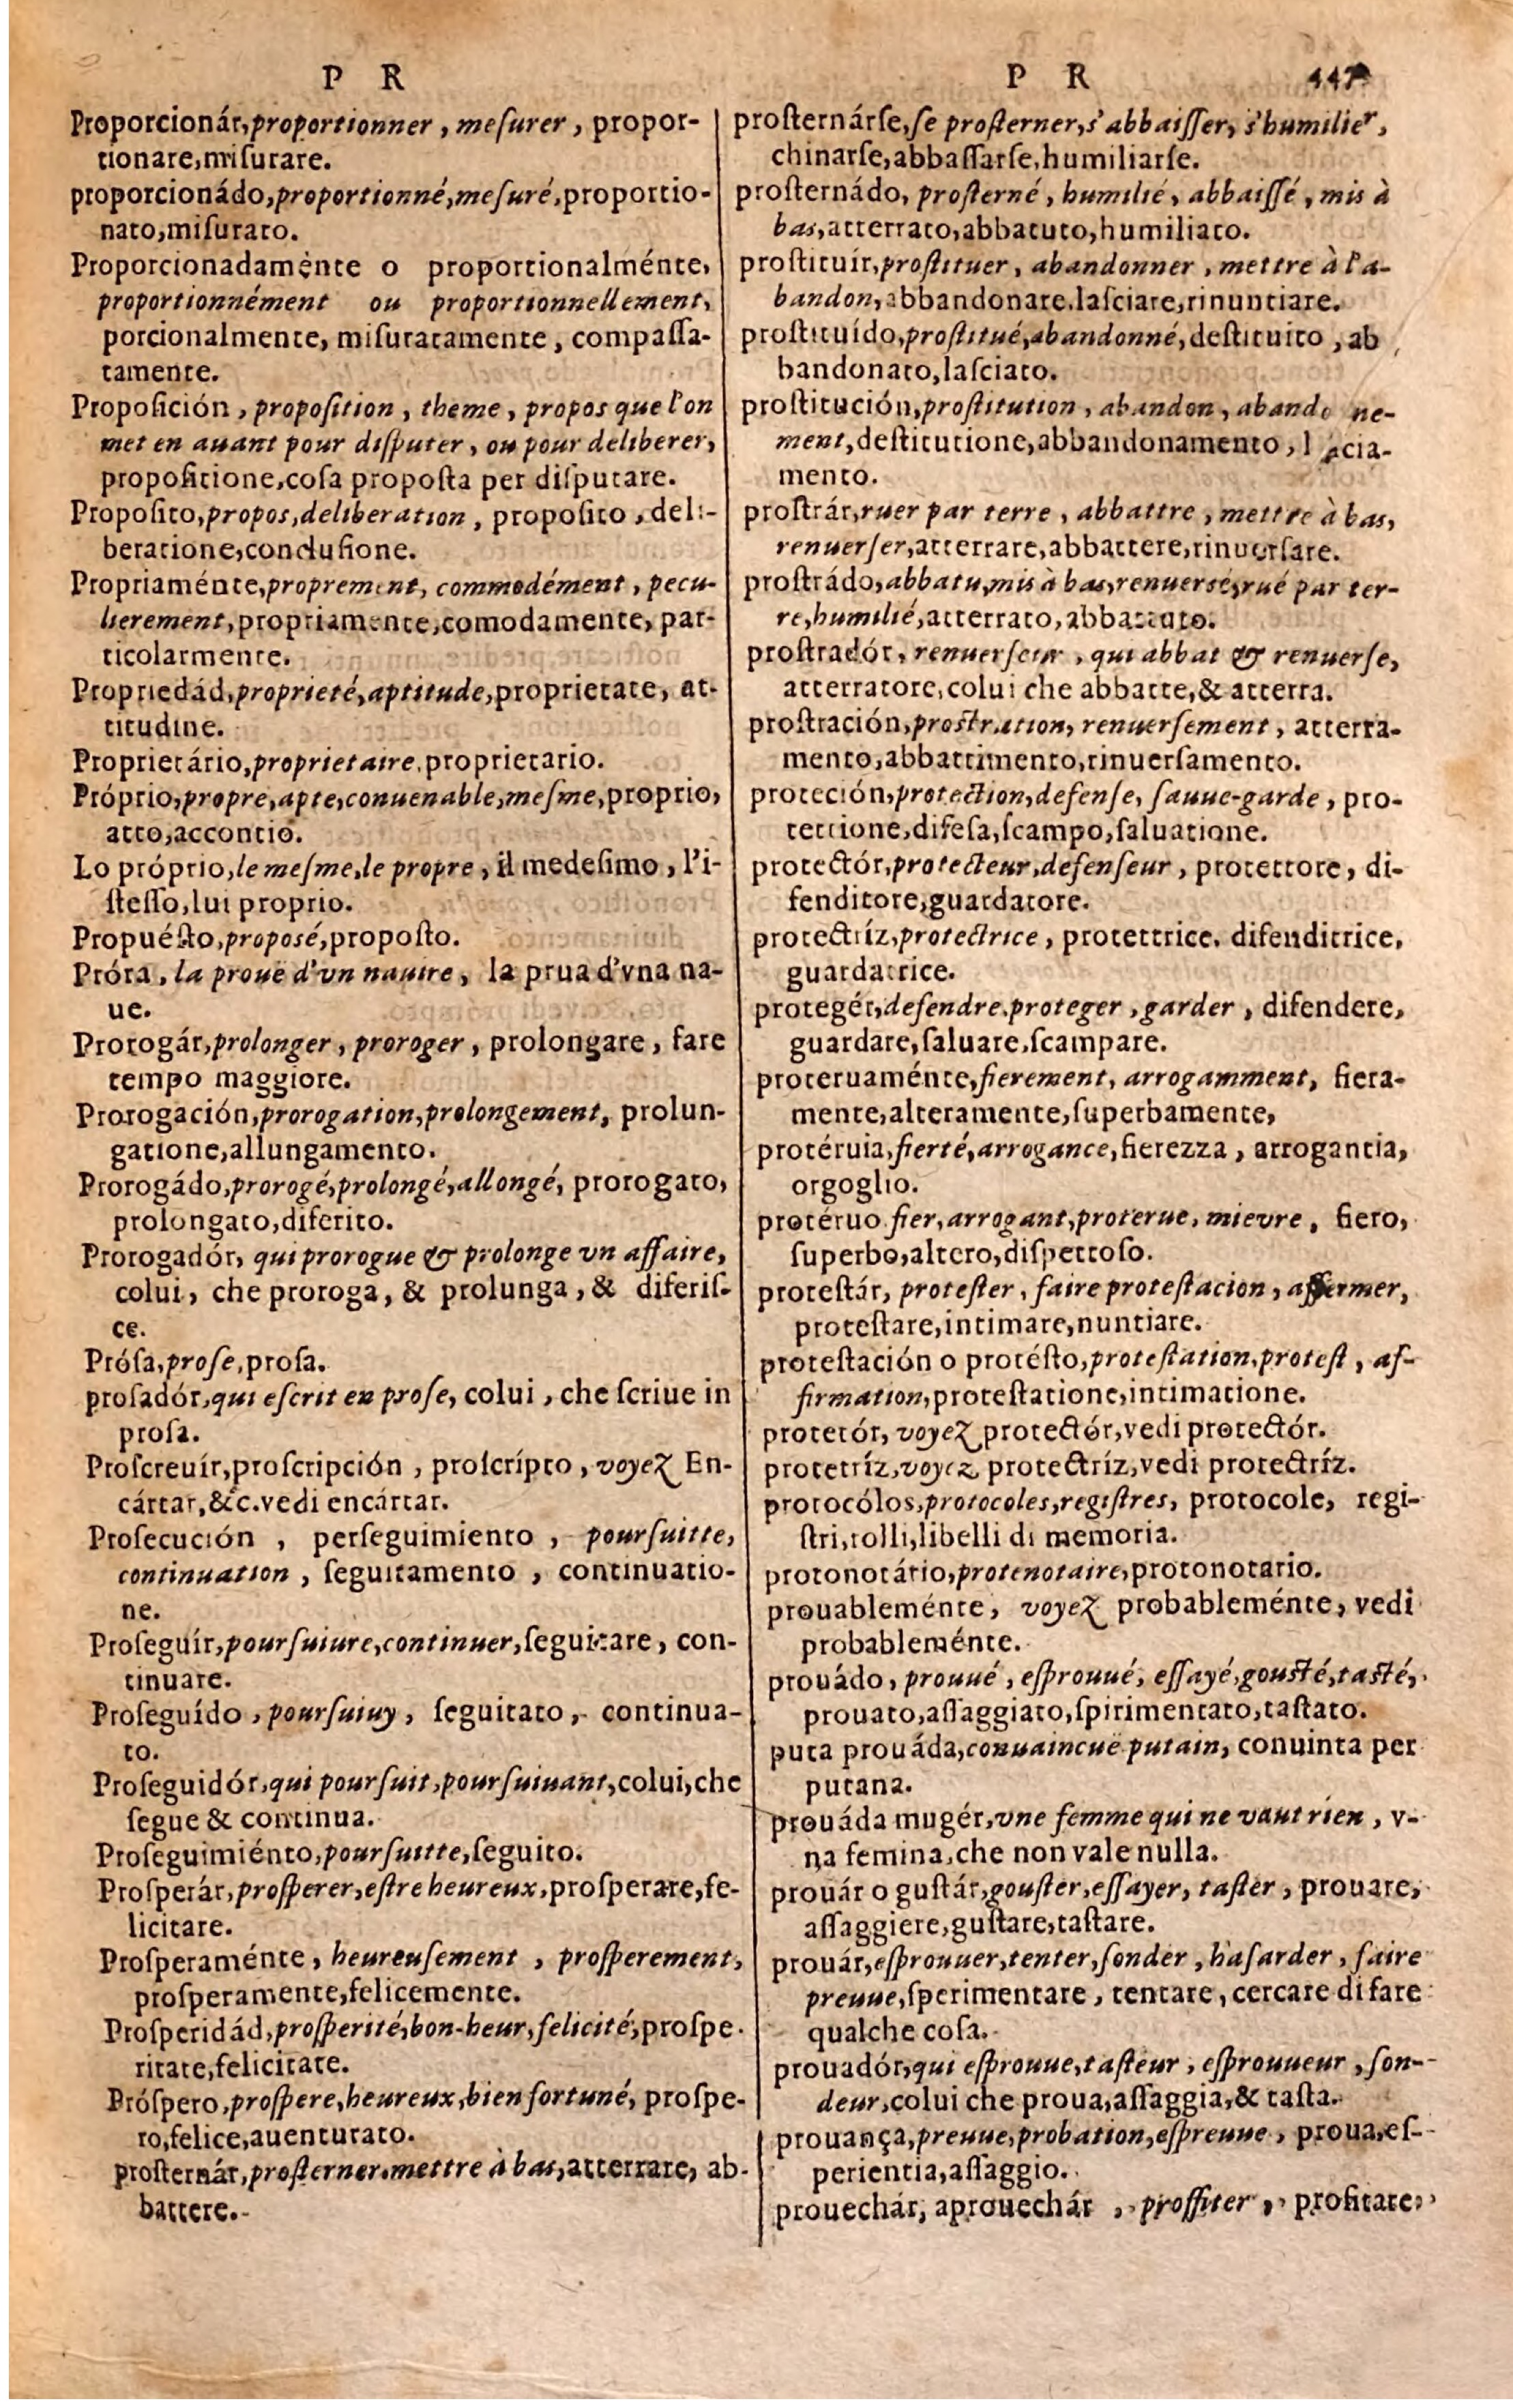 P R
Proporcionár, proportionner, meſurer, propor-
tionare, miſurare.
proporcionádo, proportionné, meſuré, proportio-
nato, miſurato.
Proporcionadaménte o proportionalménte,
proportionnément ou proportionnellement,
porcionalmente, miſuratamente, compaſſa-
tamente.
Propoſición, propoſition, theme, propos que l'on
met en auant pour diſputer, ou pour deliberer,
propoſitione, coſa propoſta per diſputare.
Propoſito, propos, deliberation, propoſito, deli-
beratione, concluſione.
Propriaménte, proprement, commodément, pecu-
lierement, propriamente, comodamente, par-
ticolarmente.
Propriedád, proprieté, aptitude, proprietate, at-
titudine.
Proprietário, proprietaire, proprietario.
Próprio, propre, apte, conuenable, meſme, proprio,
atto, accontio.
Lo próprio, le meſme, le propre, il medeſimo, l'i-
ſteſſo, lui proprio.
Propuéſto, proposé, propoſto.
Próra, la prouë d'vn nauire, la prua d'vna na-
ue.
Prorogár, prolonger, proroger, prolongare, fare
tempo maggiore.
Prorogación, prorogation, prolongement, prolun-
gatione, allungamento.
Prorogádo, prorogé, prolongé, allongé, prorogato,
prolongato, diferito.
Prorogadór, qui prorogue & prolonge vn affaire,
colui, che proroga, & prolunga, & diferiſ-
ce.
Próſa, proſe, proſa.
proſadór, qui eſcrit en proſe, colui, che ſcriue in
proſa.
Proſcreuír, proſcripción, proſcrípto, voyez En-
cártar, &c. vedi encártar.
Proſecución, perſeguimiento, pourſuitte,
continuation, ſeguitamento, continuatio-
ne.
Proſeguír, pourſuiure, continuer, ſeguitare, con-
tinuare.
Proſeguído, pourſuiuy, ſeguitato, continua-
to.
Proſeguidór, qui pourſuit, pourſuiuant, colui, che
ſegue & continua.
Proſeguimiénto, pourſuitte, ſeguito.
Proſperár, proſperer, eſtre heureux, proſperare, fe-
licitare.
Proſperaménte, heureuſement, proſperement,
proſperamente, felicemente.
Proſperidád, proſperité, bon-heur, felicité, proſpe-
ritate, felicitate.
Próſpero, proſpere, heureux, bien fortuné, proſpe-
ro, felice, auenturato.
proſternár, proſterner, mettre à bas, atterrare, ab-
battere.
P R 447
proſternárſe, ſe proſterner, s'abbaiſſer, s'humilier,
chinarſe, abbaſſarſe, humiliarſe.
proſternádo, proſterné, humilié, abbaiſſé, mis à
bas, atterrato, abbatuto, humiliato.
proſtituír, proſtituer, abandonner, mettre à l'a-
bandon, abbandonare, laſciare, rinuntiare.
proſtituído, proſtitué, abandonné, deſtituito, ab
bandonato, laſciato.
proſtitución, proſtitution, abandon, abando ne-
ment, deſtitutione, abbandonamento, l ſcia-
mento.
proſtrár, ruer par terre, abbattre, mettre à bas,
renuerſer, atterrare, abbattere, rinuerſare.
proſtrádo, abbatu, mis à bas, renuersé, rué par ter-
re, humilié, atterrato, abbattuto.
proſtradór, renuerſeur, qui abbat & renuerſe,
atterratore, colui che abbatte, & atterra.
proſtración, proſtration, renuerſement, atterra-
mento, abbattimento, rinuerſamento.
proteción, protection, defenſe, ſauue-garde, pro-
tectione, difeſa, ſcampo, ſaluatione.
protectór, protecteur, defenſeur, protettore, di-
fenditore, guardatore.
protectríz, protectrice, protettrice, difenditrice,
guardatrice.
protegér, defendre, proteger, garder, difendere,
guardare, ſaluare, ſcampare.
proteruaménte, fierement, arrogamment, fiera-
mente, alteramente, ſuperbamente,
protéruia, fierté, arrogance, fierezza, arrogantia,
orgoglio.
protéruo fier, arrogant, proterue, mievre, fiero,
ſuperbo, altero, diſpettoſo.
proteſtár, proteſter, faire proteſtacion, affermer,
proteſtare, intimare, nuntiare.
proteſtación o protéſto, proteſtation, proteſt, af-
firmation, proteſtatione, intimatione.
protetór, voyez protectór, vedi protectór.
protetríz, voyez protectríz, vedi protectríz.
protocólos, protocoles, regiſtres, protocole, regi-
ſtri, rolli, libelli di memoria.
protonotário, protenotaire, protonotario.
prouableménte, voyez probableménte, vedi
probableménte.
prouádo, prouué, eſprouué, eſſayé, gouſté, taſté,
prouato, aſſaggiato, ſpirimentato, taſtato.
puta prouáda, conuaincuë putain, conuinta per
putana.
prouáda mugér, vne femme qui ne vaut rien, v-
na femina, che non vale nulla.
prouár o guſtár, gouſter, eſſayer, taſter, prouare,
aſſaggiere, guſtare, taſtare.
prouár, eſprouuer, tenter, ſonder, haſarder, faire
preuue, ſperimentare, tentare, cercare di fare
qualche coſa.
prouadór, qui eſprouue, taſteur, eſprouueur, ſon-
deur, colui che proua, aſſaggia, & taſta.
prouança, preuue, probation, eſpreuue, proua, eſ-
perientia, aſſaggio.
prouechár, aprouechár, proffiter, profitare,